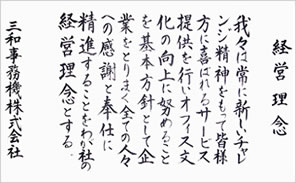 経営理念
我々は常に新しいチャレ
ンジ精神をもって皆様
方に喜ばれるサービス
提供を行いオフィス文
化の向上に努めること
を基本方針として企
業をとりまく全ての人々
への感謝と奉仕に
精進することをわが社の
経営理念とする
三和事務機株式会社